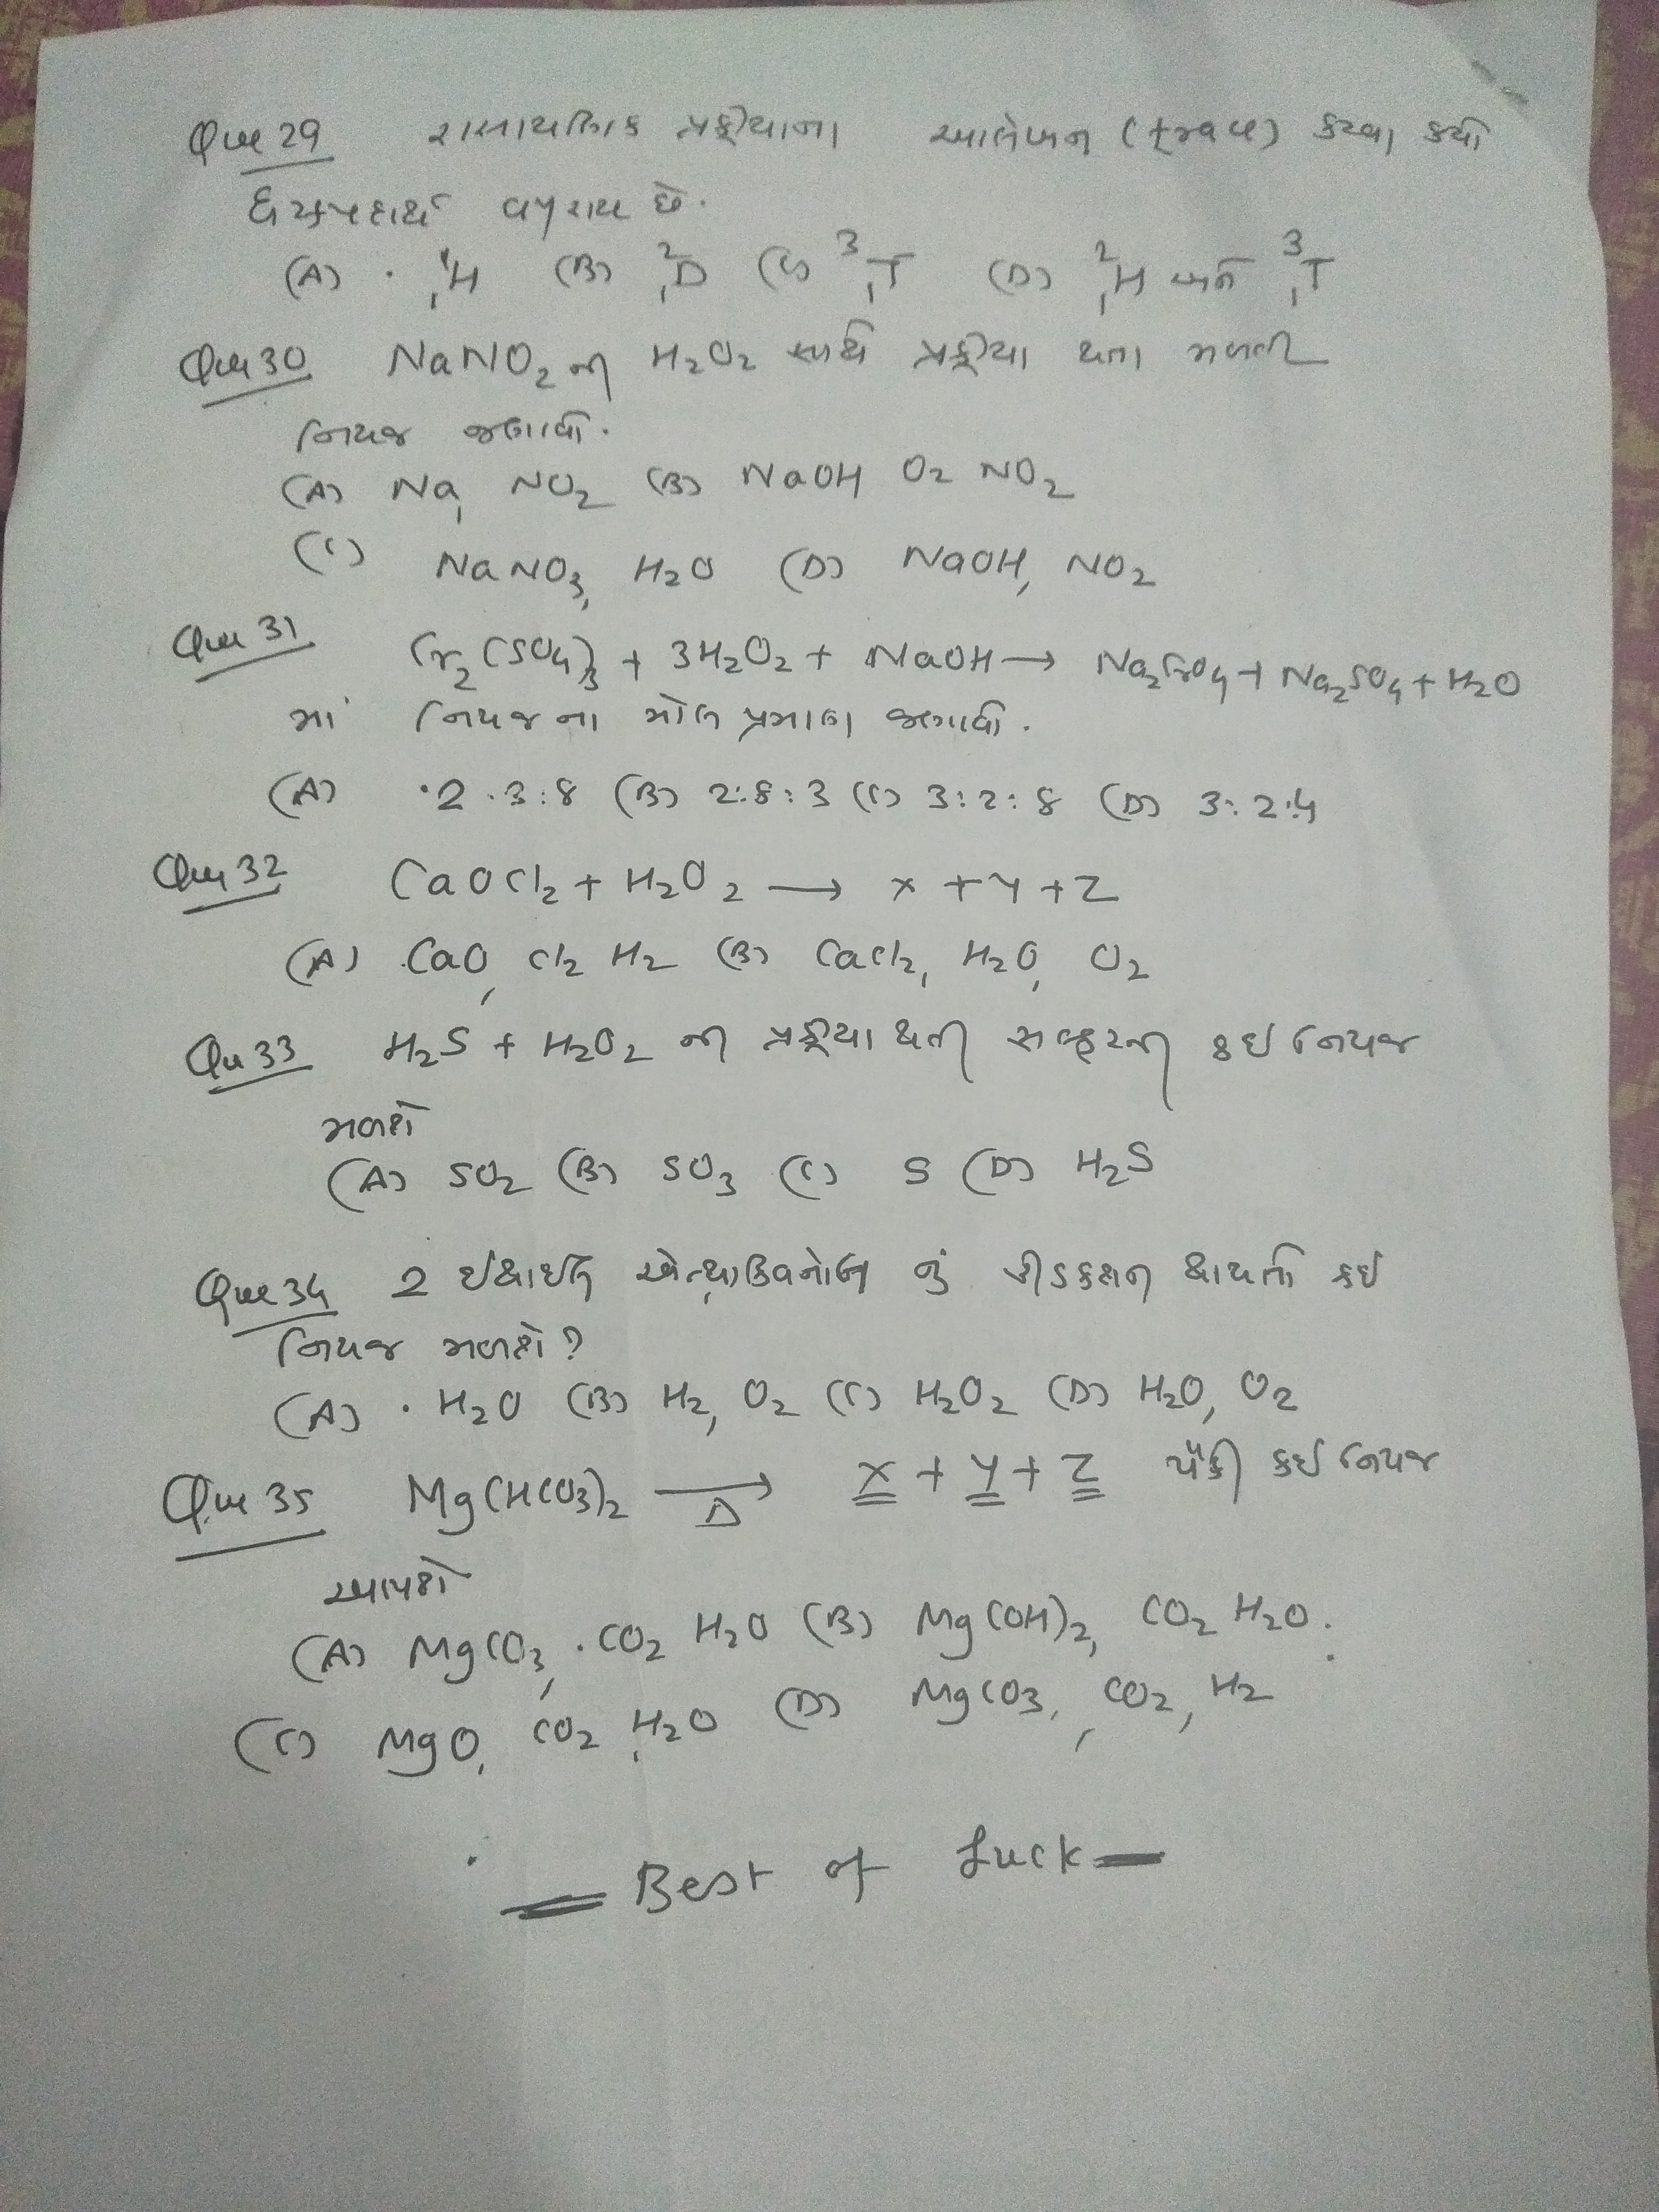 Que 29 રાસાયણિક પ્રક્રીયાના આલેખન (trace) કરવા કયો
દ્રવ્ય પદાર્થ વપરાય છે.
(A) ¹₁H (B) ²₁D (C) ³₁T (D) ²₁H અને ³₁T
Que 30 NaNO₂ ની H₂O₂ સાથે પ્રક્રીયા થતા મળતી
નિપજ જણાવો.
(A) Na, NO₂ (B) NaOH O₂ NO₂
(C) NaNO₃, H₂O (D) NaOH, NO₂
Que 31 Cr₂(SO₄)₃ + 3H₂O₂ + NaOH → Na₂CrO₄ + Na₂SO₄ + H₂O
માં નિપજના મોલ પ્રમાણ જણાવો.
(A) 2:3:8 (B) 2:8:3 (C) 3:2:8 (D) 3:2:4
Que 32 CaOCl₂ + H₂O₂ → x + y + z
(A) CaO, Cl₂ H₂ (B) CaCl₂, H₂O, O₂
Qu 33 H₂S + H₂O₂ ની પ્રક્રીયા થતી સલ્ફરની કઇ નિપજ
મળશે
(A) SO₂ (B) SO₃ (C) S (D) H₂S
Que 34 2 ઇથાઇલ એન્થ્રાક્વિનોલ નું રીડકશન થાયતો કઇ
નિપજ મળશે?
(A) H₂O (B) H₂, O₂ (C) H₂O₂ (D) H₂O, O₂
Que 35 Mg(HCO₃)₂ →Δ x + y + z પૈકી કઇ નિપજ
આપશે
(A) MgCO₃, CO₂ H₂O (B) Mg(OH)₂, CO₂ H₂O.
(C) MgO, CO₂, H₂O (D) MgCO₃, CO₂, H₂
Best of Luck